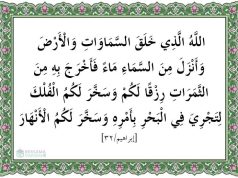 اللَّهُ الَّذِي خَلَقَ السَّمَاوَاتِ وَالْأَرْضَ
وَأَنْزَلَ مِنَ السَّمَاءِ مَاءً فَأَخْرَجَ بِهِ مِنَ
الثَّمَرَاتِ رِزْقًا لَكُمْ وَسَخَّرَ لَكُمُ الْفُلْكَ
لِتَجْرِيَ فِي الْبَحْرِ بِأَمْرِهِ وَسَخَّرَ لَكُمُ الْأَنْهَارَ
[إبراهيم/٣٢]